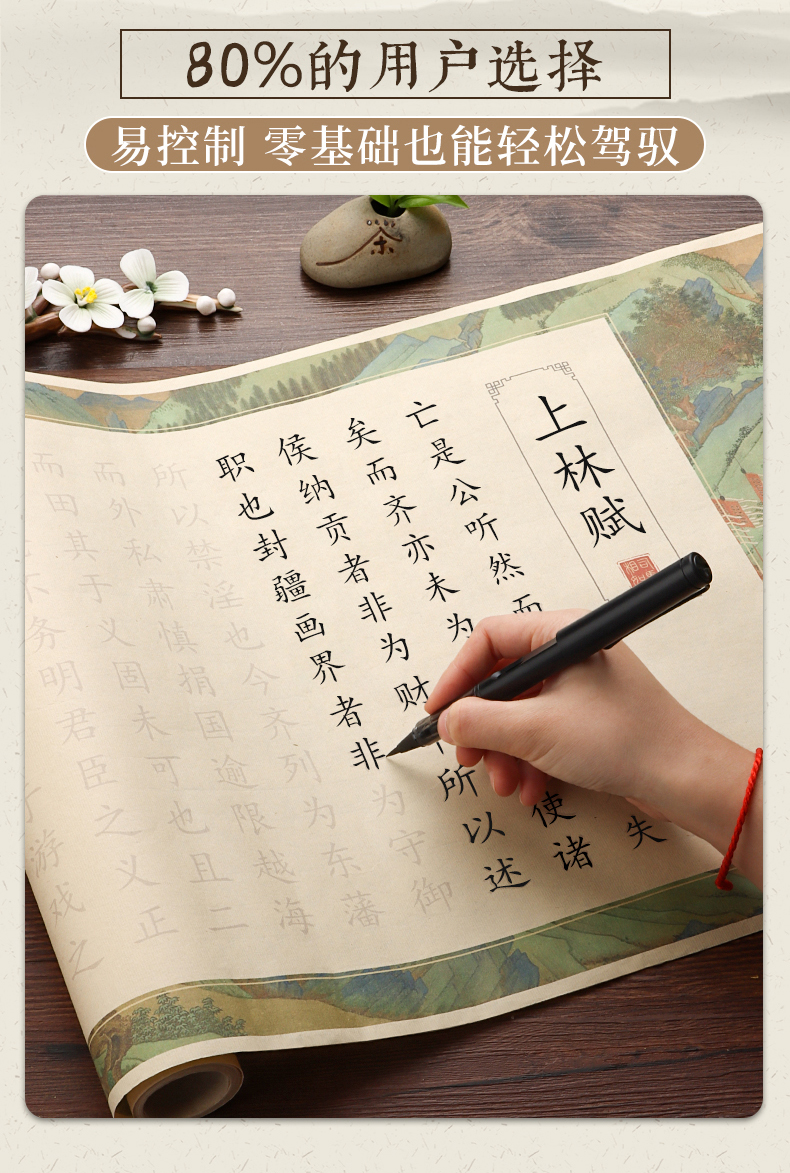 80%的用户选择
易控制 零基础也能轻松驾驭
茶
上林赋
亡是公听然而
失
矣而齐亦未为
使诸
侯纳贡者非为财
所以述
职也封疆画界者非为守御
所以禁淫也今齐列为东藩
而外私肃慎捐国逾限越海
而田其于义固未可也且二
务明君臣之义正
游戏之